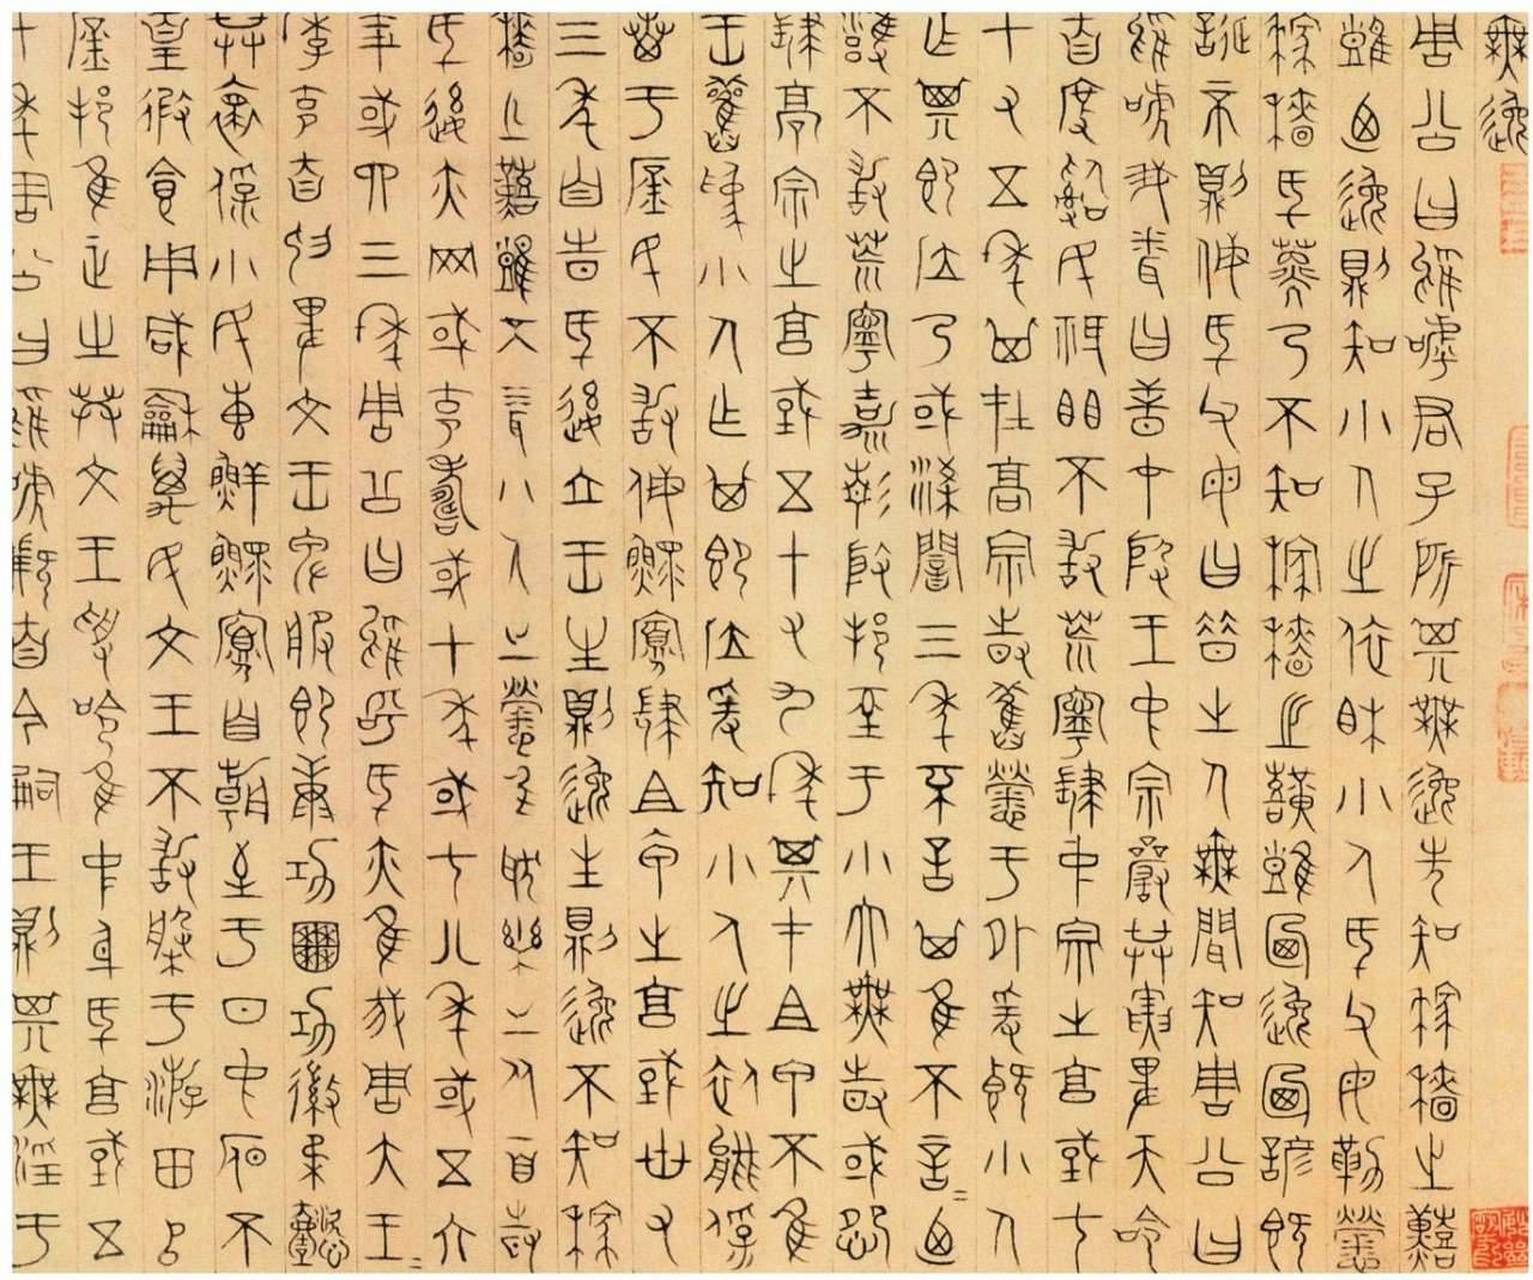 無逸
周公曰嗚呼君子所其無逸先知稼穡之艱
難乃逸則知小人之依相小人厥父母勤勞
稼穡厥子乃不知稼穡之艱難乃逸乃諺既
誕否則侮厥父母曰昔之人無聞知周公曰
嗚呼我聞曰昔在殷王中宗嚴恭寅畏天命
自度治民祗懼不敢荒寧肆中宗之享國七
十有五年其在高宗時舊勞于外爰暨小人
作其即位乃或亮陰三年不言其惟不言乃
雍不敢荒寧嘉靖殷邦至于小大無時或怨
肆高宗之享國五十有九年其在祖甲不惟
王舊為小人作其即位爰知小人之依能保
惠于庶民不敢侮鰥寡肆祖甲之享國卅有
三年自時厥後立王生則逸生則逸不知稼
穡之艱難不聞小人之勞惟耽樂之從自時
厥後亦罔或克壽或十年或七八年或五六
年或四三年周公曰嗚呼厥亦惟我周太王
季克自抑畏文王卑服即康功田功徽柔懿
恭懷保小民惠鮮鰥寡自朝至于日中昃不
遑暇食用咸和萬民文王不敢盤于遊田以
庶邦惟正之供文王受命惟中身厥享國五
十年周公曰嗚呼繼自今嗣王則其無淫于